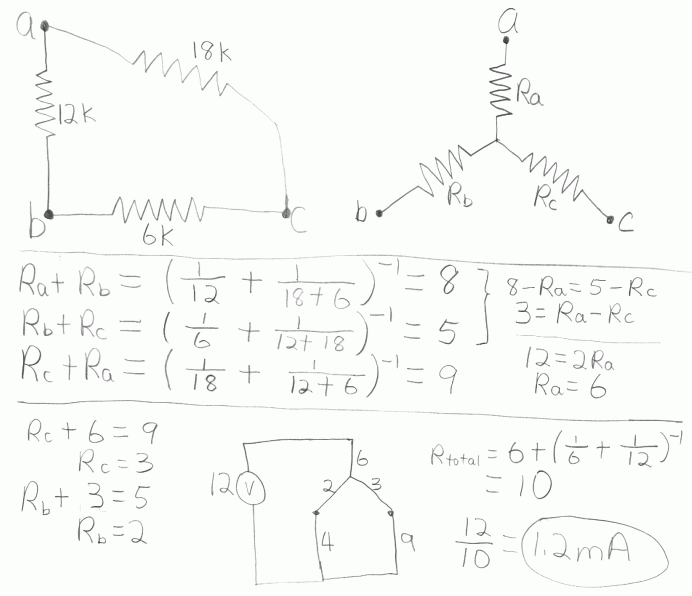 a
18K
12K
b
6K
C
a
Ra
Rb
Rc
b
C
Ra + Rb = (1/12 + 1/(18+6))^-1 = 8
Rb + Rc = (1/6 + 1/(12+18))^-1 = 5
Rc + Ra = (1/18 + 1/(12+6))^-1 = 9
8-Ra = 5-Rc
3 = Ra-Rc
12 = 2Ra
Ra = 6
Rc + 6 = 9
Rc = 3
Rb + 3 = 5
Rb = 2
12 V
6
2
3
4
9
Rtotal = 6 + (1/6 + 1/12)^-1
= 10
12/10 = 1.2mA